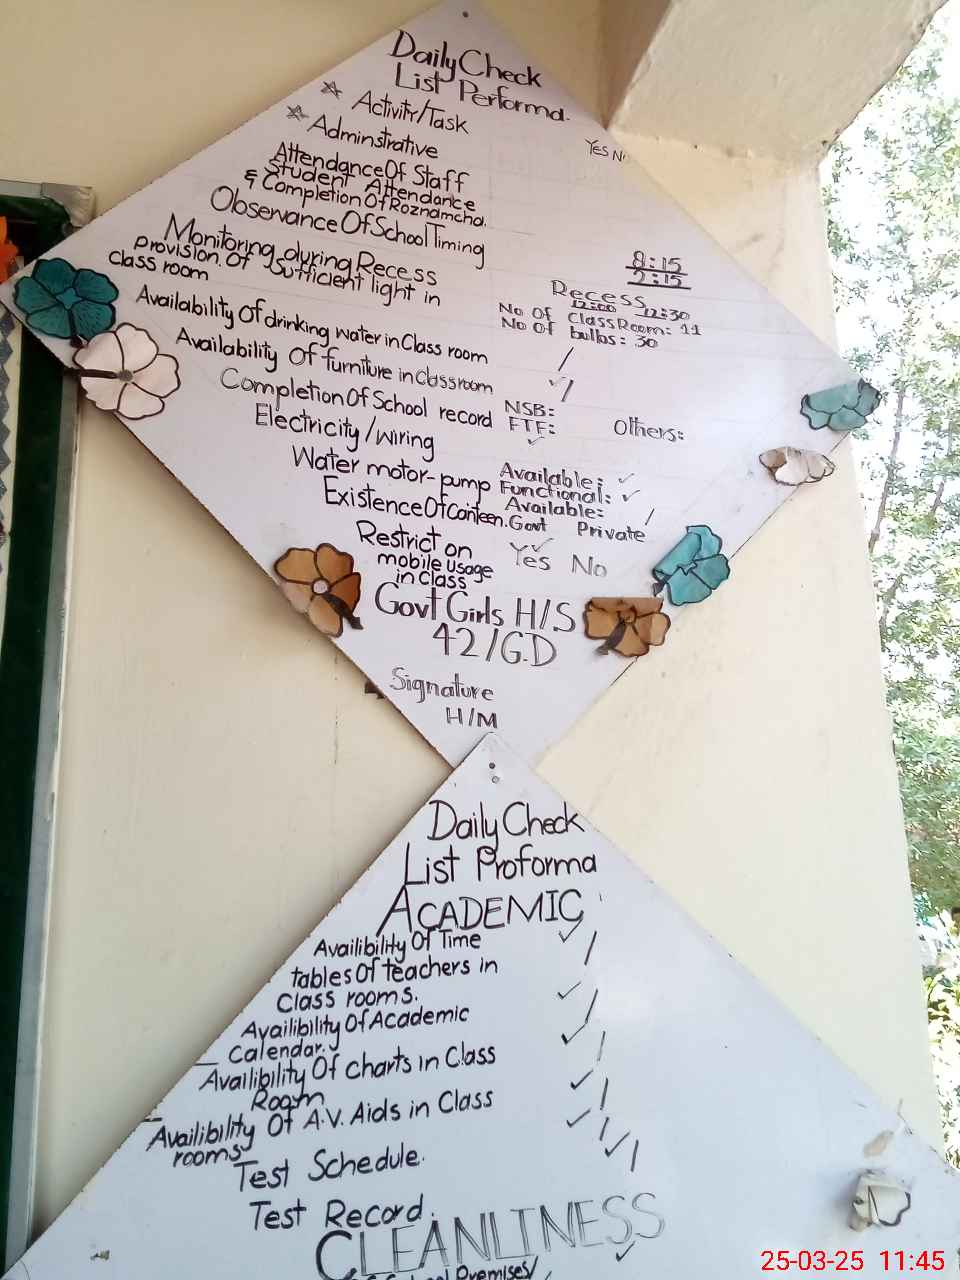 Daily Check
List Performa.
Activity/Task
Yes
Adminstrative
Attendance Of Staff
Student Attendance
& Completion Of Roznamcha.
Observance Of School Timing
8:15
2:15
Monitoring during Recess
Recess
12:00 12:30
provision Of Sufficient light in
class room
No Of ClassRoom: 11
No Of bulbs: 30
Availability Of drinking water in Class room
Availability Of furniture in Classroom
Completion Of School record
NSB:
FTF: Others:
Electricity/wiring
Water motor-pump
Available:
Functional:
Existence Of Canteen.
Available:
Govt Private
Restrict on
mobile usage
in class
Yes No
Govt Girls H/S
42/G.D
Signature
H/M
Daily Check
List Proforma
ACADEMIC
Availibility Of Time
tables Of teachers in
Class rooms.
Availibility Of Academic
Calendar.
Availibility Of charts in Class
Room
Availibility Of A.V. Aids in Class
rooms
Test Schedule.
Test Record.
CLEANLINESS
Premises/
25-03-25 11:45